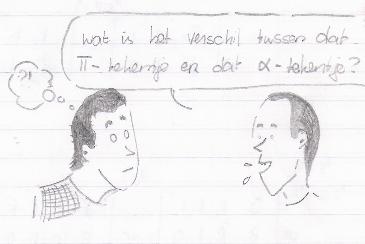 wat is het verschil tussen dat
π-tekentje en dat α-tekentje?
?!